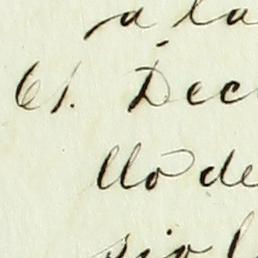 a la
61. Dec
llo de
siol